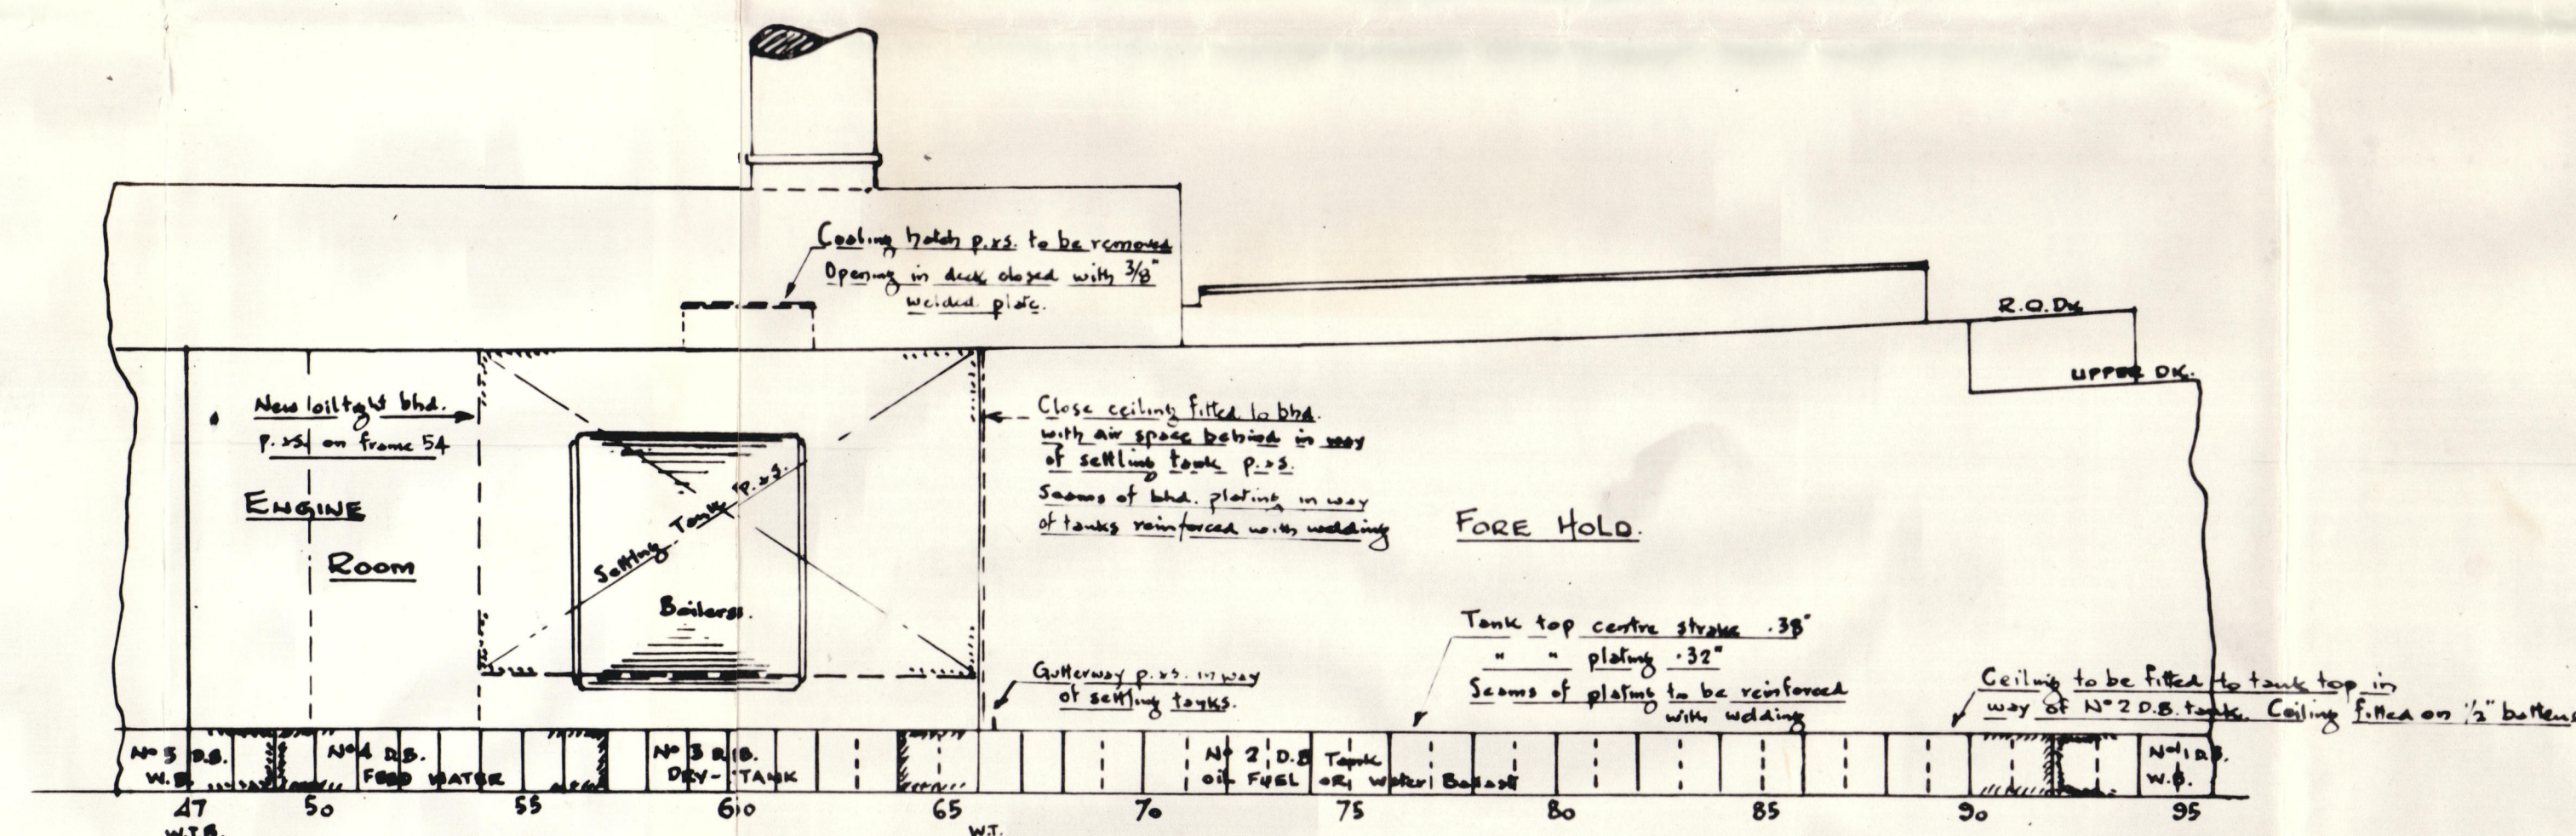 Coaling hatch p.&s. to be removed
Opening in deck closed with 3/8"
welded plate.
R.Q.Dk
UPPER DK.
New oiltight bhd.
p.&s. on frame 54
Close ceiling fitted to bhd.
with air space behind in way
of settling tank p.&s.
Seams of bhd. plating in way
of tanks reinforced with welding
ENGINE
ROOM
Settling Tank p.&s.
Boilers.
FORE HOLD.
Gutterway p.&s. in way
of settling tanks.
Tank top centre strake .38"
" " plating .32"
Seams of plating to be reinforced
with welding
Ceiling to be fitted to tank top in
way of No 2 D.B. tank. Ceiling fitted on ½" battens
No 5 D.B.
W.B.
No 4 D.B.
FEED WATER
No 3 D.B.
DRY-TANK
No 2 D.B Tank
OIL FUEL OR Water Ballast
No 1 D.B.
W.B.
47 50 55 60 65 70 75 80 85 90 95
W.T.B. W.T.